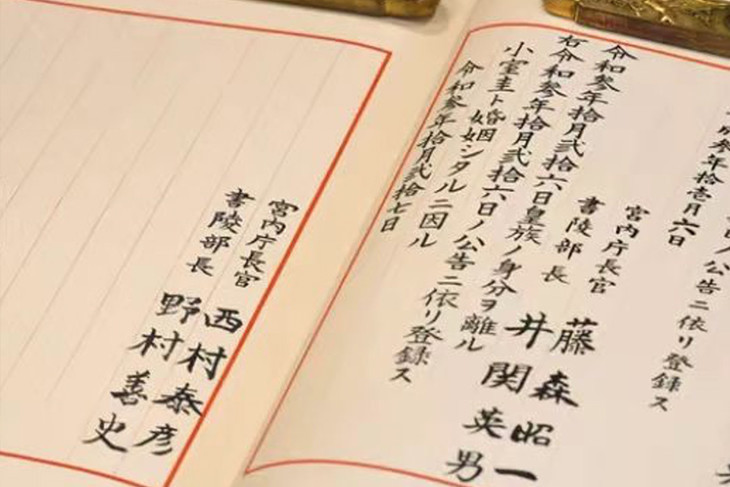 ノ公告ニ依リ登録ス
成參年拾壱月六日
宮内庁長官 藤森昭一
書陵部長 井関英男
令和參年拾月弐拾六日皇族ノ身分ヲ離ル
右令和參年拾月弐拾六日ノ公告ニ依リ登録ス
小室圭ト婚姻シタルニ因ル
令和參年拾月弐拾七日
宮内庁長官 西村泰彦
書陵部長 野村善史